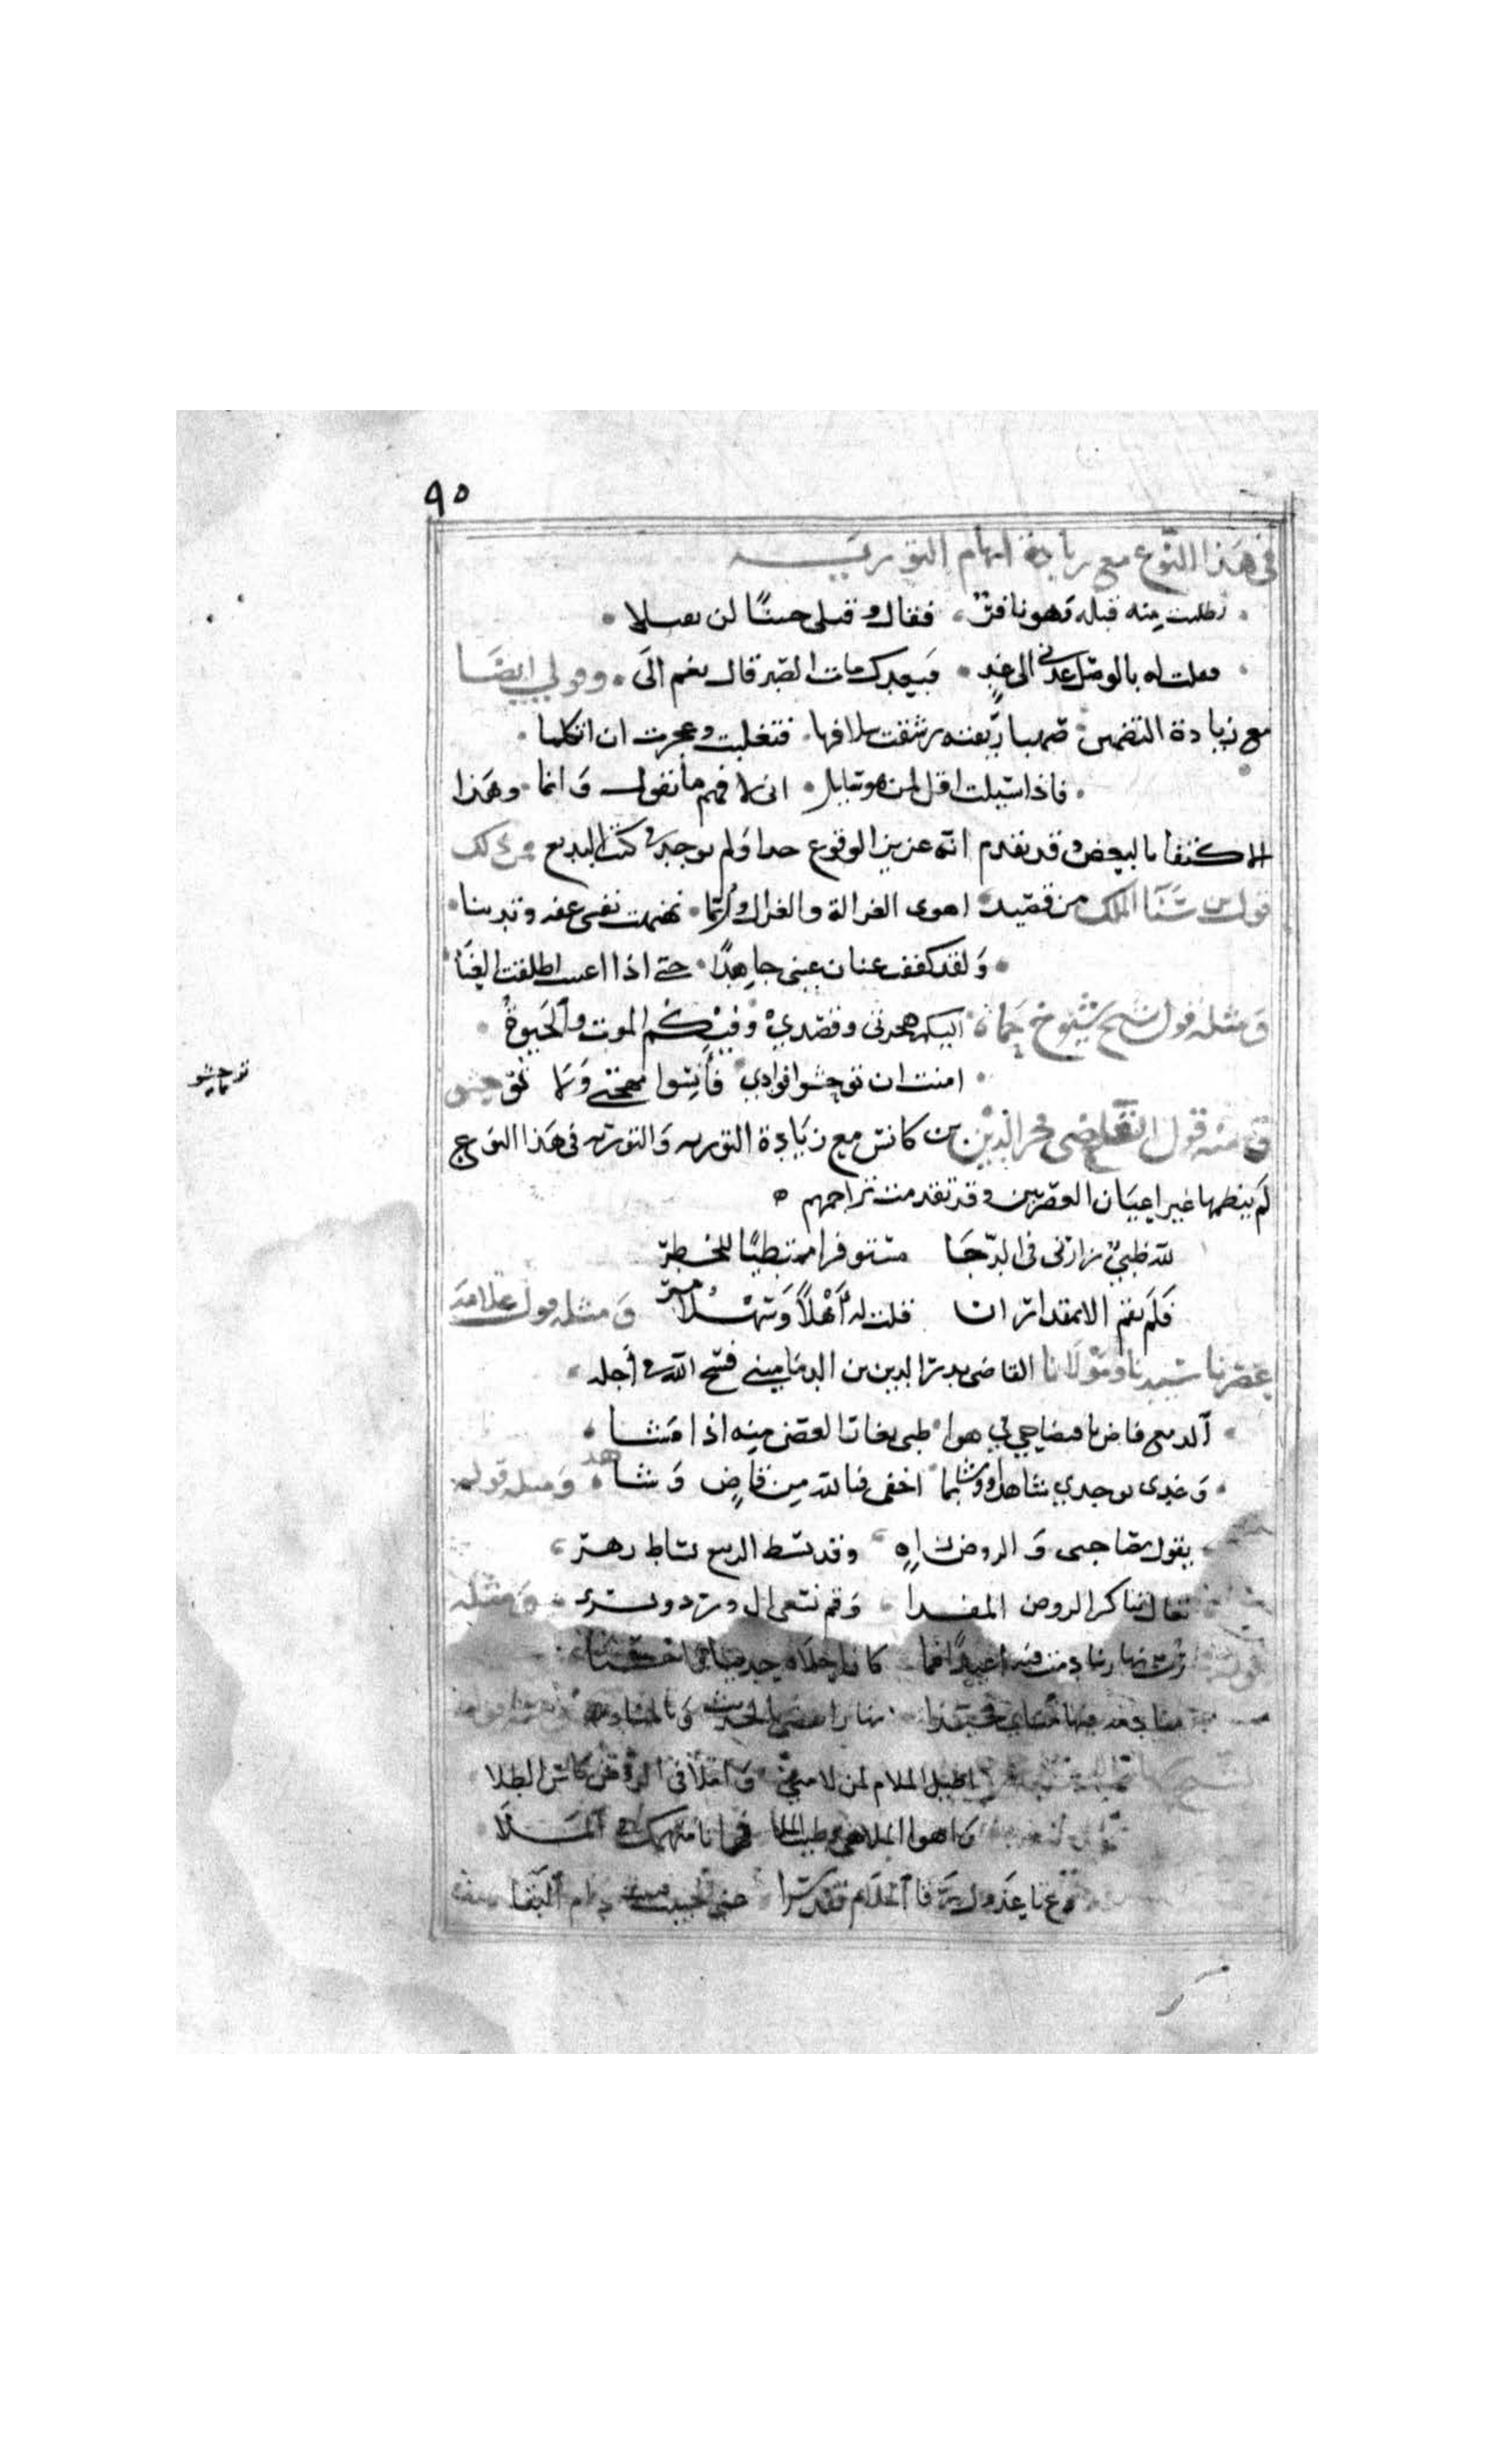 ٩٥
في هذا النوع مع زيادة ايهام التورية
طلبت منه قبله وهو نافر فقال و قبلى حيا لن يصلا
فقلت له بالوصل عدني الى غد فبعدك مات الصبر قال نعم الى وقولي ايضا
مع زيادة التضمين صهبا ريقته رشفت سلافها فتغلبت وعجزت ان اتكلما
فاذا سيلت اقل لمن هو سايل انى لا فهم ما تقول و انما وهذا
الاكتفا بالبعض وقد تقدم انه عزيز الوقوع جدا ولم يوجد في كتب البديع من ذلك
قول بن سنا الملك من قصيد اهوى الغزالة والغزال وربما نهنهت نفسى عفه وتدينا
ولقد كففت عنان عينى جاهدًا حتى اذا اعييت اطلقت العنا
ومثله قول شيخ شيوخ حماة اليكم هجرتى وقصدي وفيكم الموت والحيوة
امنت ان توحشوا فوادي فأنسوا مهجتي ولا توحشو
توحشو
ومنه قول القاضى فخر الدين بن مكانس مع زيادة التوريه والتوريه في هذا النوع
لم ينظمها غير اعيان العصريين وقد تقدمت تراجمهم
لله ظبي زارنى في الدجا مستوفزا ممتطيًا للخطر
فلم يقم الا بمقدار ان قلت له أهلاً وسهلا ومر ومثله قول علامة
عصرنا سيدنا ومولانا القاضى بدر الدين بن الدماميني فسح الله في أجله
الدمع قاض بافتضاحي في هوا ظبي يغار الغصن منه اذا مشا
وغدى بوجدي شاهدا ووشا بما اخفى فيا لله من قاض وشاهد ومثله قوله
يقول مصاحبى و الروض زاه وقد بسط الربيع بساط زهر
تعال نباكر الروض المفدا وقم نسعى الى ورد ونسرى ومثله
اطيل الملام لمن لامني وأملأ في الروض كاس الطلا
واهوا الملاهي وطيب الملا فها انا منهمك في الملا